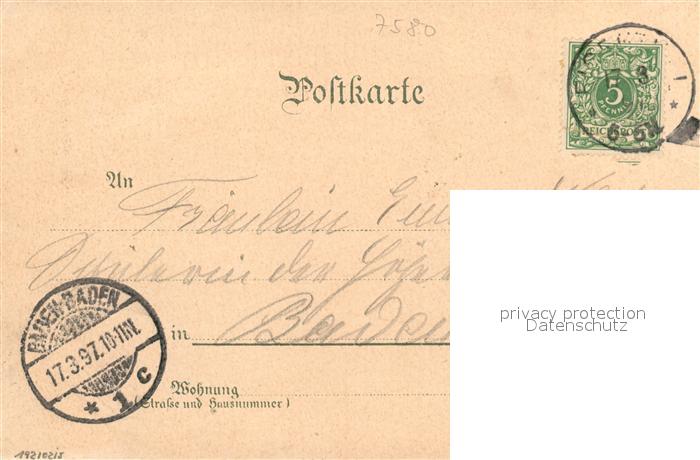 7580
Postkarte
17 3
5
PFENNIG
REICHSPOST
An
Fräulein
Schülerin der Höher
in Baden
BADEN-BADEN
17.3.97.10-11N.
* 1 c
Wohnung
(Straße und Hausnummer)
privacy protection
Datenschutz
19210215